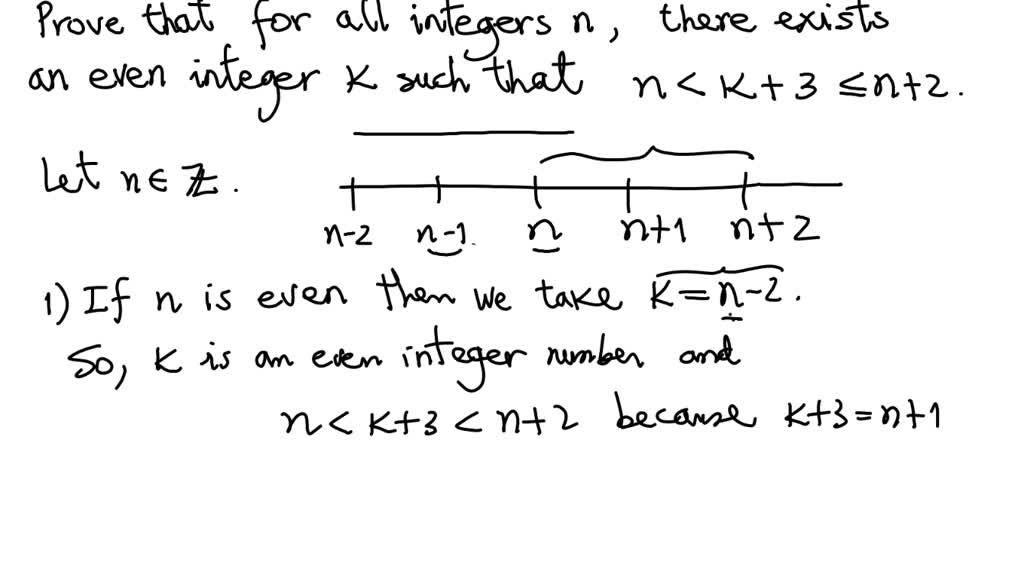 Prove that for all integers n, there exists
an even integer K such that n < K + 3 ≤ n+2.
Let n ∈ ℤ.
n-2 n-1 n n+1 n+2
1) If n is even then we take K = n-2.
So, K is an even integer number and
n < K+3 < n+2 because K+3 = n+1